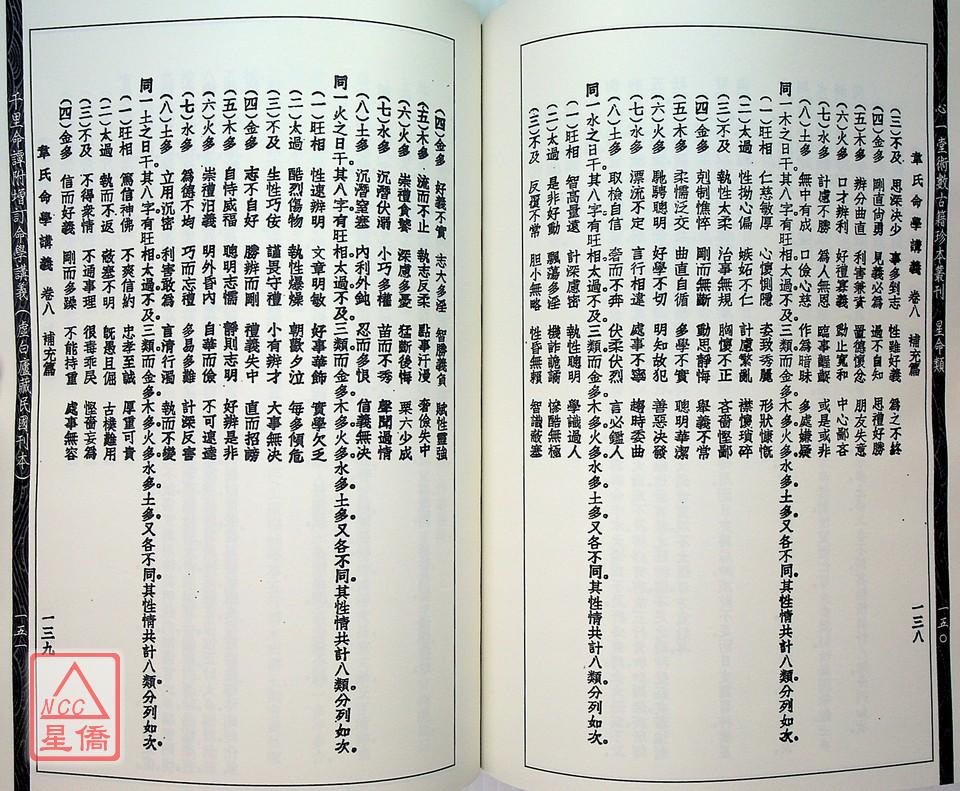 心一堂術數古籍珍本叢刊 星命類 一五〇
韋氏命學講義 卷八 補充篇 一三八
(三)不及 思深決少 事多到志 性雖好義 為之不終
(四)金多 剛直尙勇 見義必為 過不自知 思禮好勝
(五)木多 辨分曲直 利害兼資 置德懷忿 朋友失意
(六)火多 口才辨利 好禮寡義 動止寬和 中心鄙吝
(七)水多 計慮不勝 為人無恩 臨事齟齬 或是或非
(八)土多 無中有成 口儉心慈 作為暗昧 多處嫌疑
同一木之日干。其八字有旺相太過不及三類。而金多木多火多水多土多。又各不同。其性情共計八類。分列如次。
(一)旺相 仁慈敏厚 心懷惻隱 姿致秀麗 形狀慷慨
(二)太過 性拗心偏 嫉妬不仁 計慮繁亂 襟懷瑣碎
(三)不及 執性太柔 治事無規 胸懷不正 吝嗇慳鄙
(四)金多 剋制憔悴 剛而無斷 動思靜悔 舉義不常
(五)木多 柔懦泛交 曲直自循 多學不實 聰明華潔
(六)火多 馳騁聰明 好學不切 明知故犯 善惡決發
(七)水多 漂流不定 言行相違 處事不寧 趨時委曲
(八)土多 取檢自信 奢而不奔 伏柔伏烈 言必鑑人
同一水之日干。其八字有旺相太過不及三類。而金多木多火多水多土多。又各不同。其性情共計八類。分列如次。
(一)旺相 智高量遠 計深慮密 機詐詭譎 學識過人
(二)太過 是非好動 飄蕩多淫 機詐詭譎 慘酷無極
(三)不及 反覆不常 胆小無略 性昏無賴 智識蔽塞
(四)金多 好義不實 志大多淫 智勝義負 賦性靈強
(五)木多 流而不止 執志反柔 點事汗漫 奢儉失中
(六)火多 崇禮貪繁 深慮多憂 猛斷後悔 粟六少成
(七)水多 沉潛伏溺 小巧多權 苗而不秀 聲聞過情
(八)土多 沉潛窒塞 內利外鈍 忍而多恨 信義無決
同一火之日干。其八字有旺相太過不及三類。而金多木多火多水多土多。又各不同。其性情共計八類。分列如次。
(一)旺相 性速辨明 文章明敏 好事華飾 實學欠乏
(二)太過 酷烈傷物 執性爆燥 朝歡夕泣 每多傾危
(三)不及 生性巧佞 謹畏守禮 小有辨才 大事無決
(四)金多 志不自好 勝辨而剛 禮義失中 直而招謗
(五)木多 自恃威福 聰明志懦 靜則志明 好辨是非
(六)火多 崇禮汨義 明外昏內 自華而儉 不可遠達
(七)水多 為德不均 巧而忘禮 多易多難 計深反害
(八)土多 立用沉密 利害敢為 言清行濁 執而不變
同一土之日干。其八字有旺相太過不及三類。而金多木多火多水多土多。又各不同。其性情共計八類。分列如次。
(一)旺相 篤信神佛 不爽信約 忠孝至誠 厚重可貴
(二)太過 執而不返 蔽塞不明 既愚且倔 古樸難用
(三)不及 不得衆情 不通事理 很毒乖戾 慳嗇妄為
(四)金多 信而好義 剛而多躁 不能持重 處事無容
韋氏命學講義 卷八 補充篇 一三九
千里命譚附增訂命學講義(虛白廬藏民國刊本) 一五一
NCC
星僑